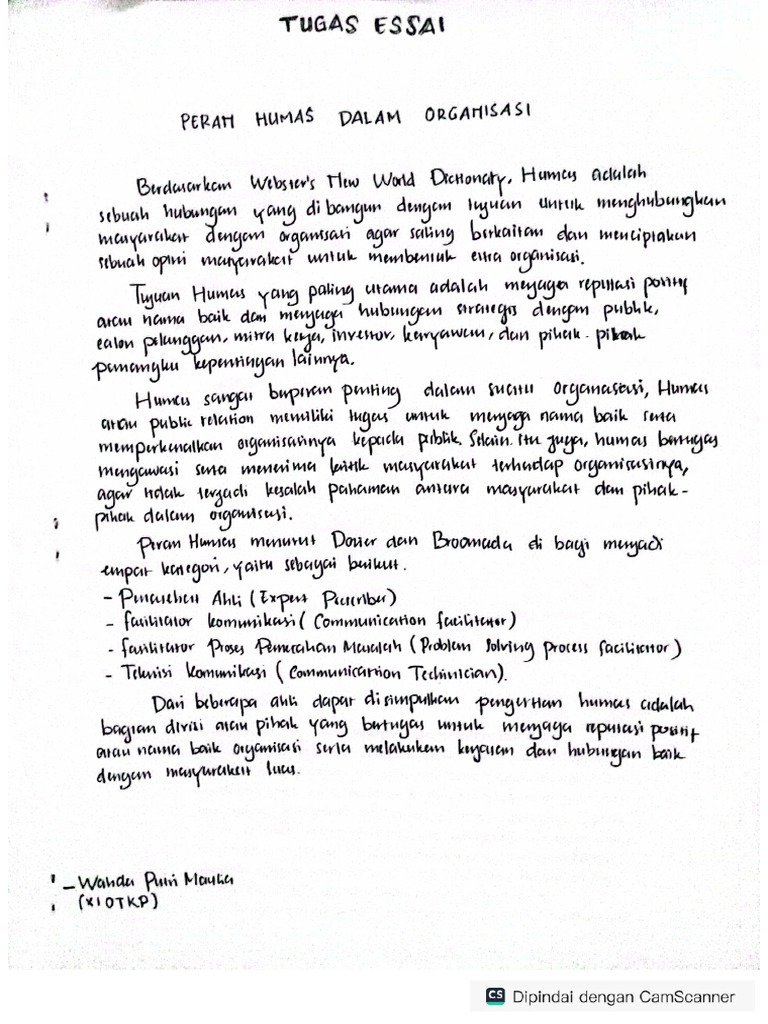 TUGAS ESSAI
PERAN HUMAS DALAM ORGANISASI
Berdasarkan Webster's New World Dictionary, Humas adalah
sebuah hubungan yang di bangun dengan tujuan untuk menghubungkan
masyarakat dengan organisasi agar saling berkaitan dan menciptakan
sebuah opini masyarakat untuk membentuk citra organisasi.
Tujuan Humas yang paling utama adalah menjaga reputasi positif
atau nama baik dan menjaga hubungan strategis dengan publik,
calon pelanggan, mitra kerja, investor, karyawan, dan pihak-pihak
pemangku kepentingan lainnya.
Humas sangat berperan penting dalam suatu organisasi, Humas
atau public relation memiliki tugas untuk menjaga nama baik serta
memperkenalkan organisasinya kepada publik. Selain itu juga, humas bertugas
mengawasi serta menerima kritik masyarakat terhadap organisasinya,
agar tidak terjadi kesalah pahaman antara masyarakat dan pihak-
pihak dalam organisasi.
Peran Humas menurut Dozier dan Broomada di bagi menjadi
empat kategori, yaitu sebagai berikut.
- Penasehat Ahli (Expert Prescriber)
- Fasilitator komunikasi (Communication facilitator)
- fasilitator Proses Pemecahan Masalah (Problem Solving process facilitator)
- Teknisi komunikasi (Communication Technician).
Dari beberapa ahli dapat disimpulkan pengertian humas adalah
bagian divisi atau pihak yang bertugas untuk menjaga reputasi positif
atau nama baik organisasi serta melakukan kerjasam dan hubungan baik
dengan masyarakat luas.
- Wanda Putri Maulia
(XI OTKP)
CS Dipindai dengan CamScanner